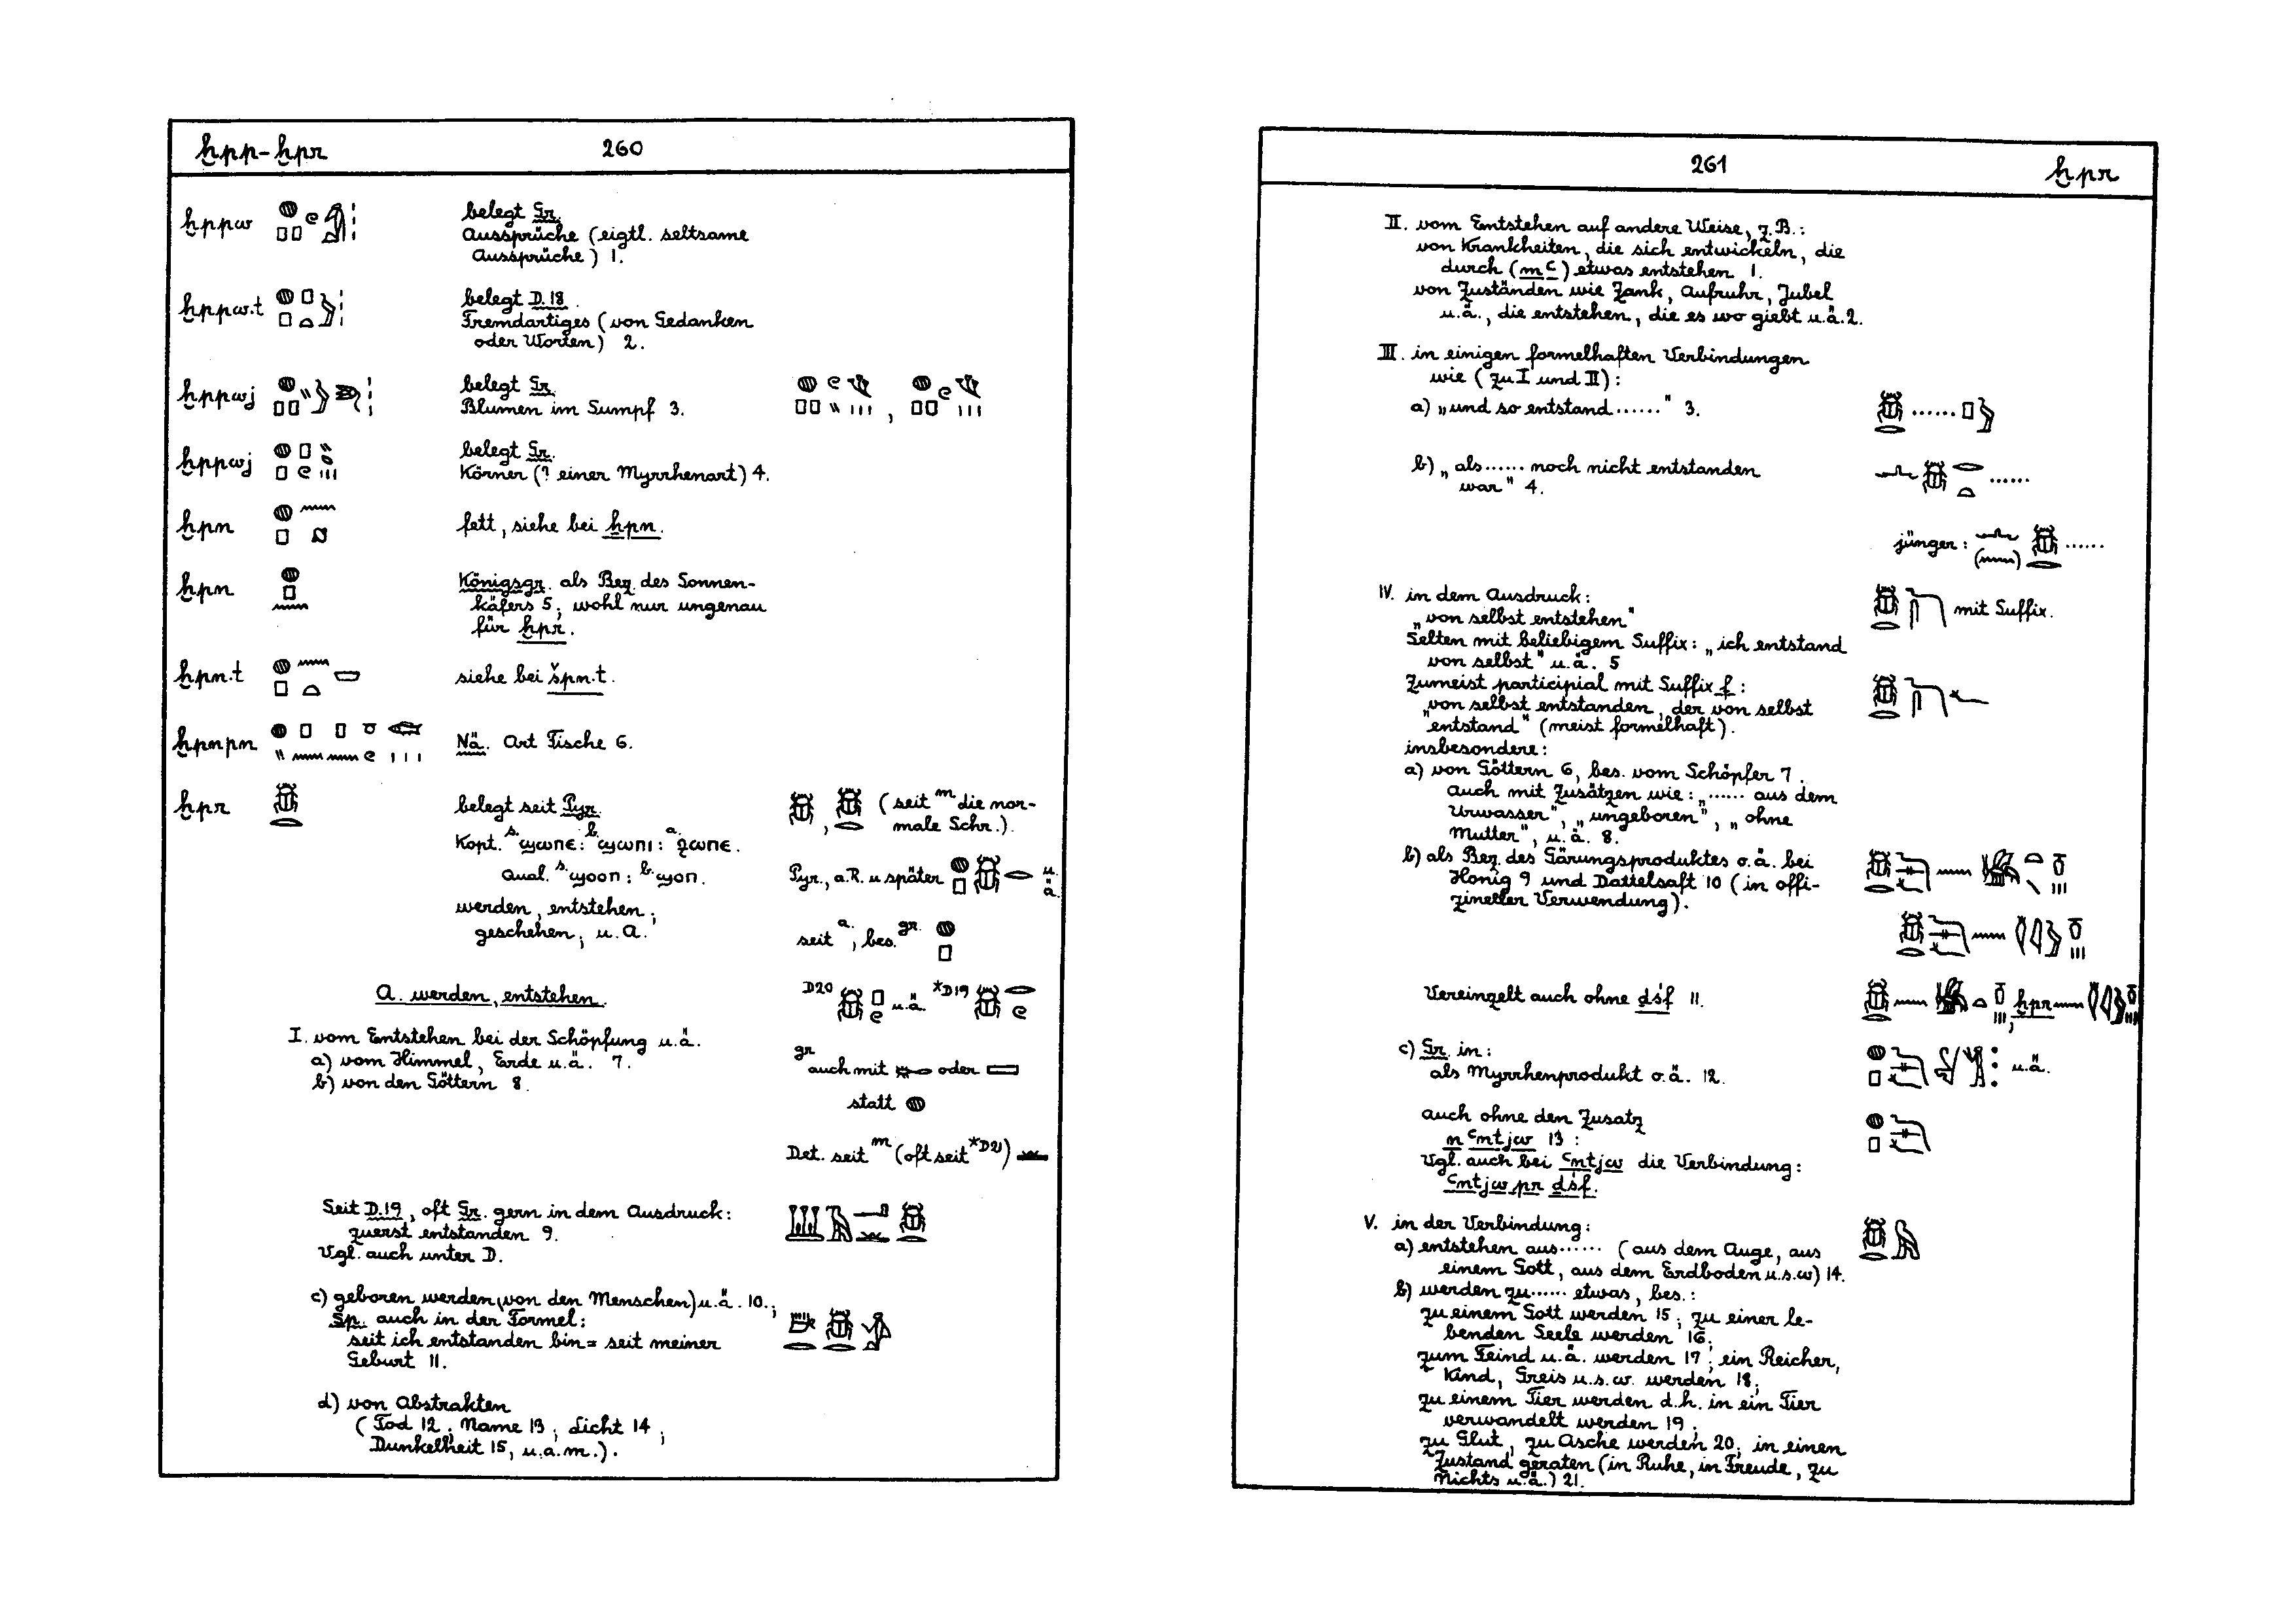 ḫpp-ḫpr 260
ḫppw belegt Gr.
Aussprüche (eigtl. seltsame
Aussprüche) 1.
ḫppw.t belegt D.18.
Fremdartiges (von Gedanken
oder Worten) 2.
ḫppwj belegt Gr.
Blumen im Sumpf 3.
ḫppwj belegt Gr.
Körner (? einer Myrrhenart) 4.
ḫpn fett, siehe bei ẖpn.
ḫpn Königsgr. als Bez. des Sonnen-
käfers 5; wohl nur ungenau
für ḫpr.
ḫpn.t siehe bei špn.t.
ḫpnpn Nä. Art Fische 6.
ḫpr belegt seit Pyr.
(seit m die nor-
male Schr.).
Kopt. s. ϣωπε: b. ϣωπι: a. ϩωπε.
Qual. s. ϣοοπ: b. ϣοπ.
Pyr., a.R. u später u. ä.
werden, entstehen;
geschehen; u. a.
seit a., bes. gr.
A. werden, entstehen.
D20 u.ä. *D19
I. vom Entstehen bei der Schöpfung u.ä.
a) vom Himmel, Erde u.ä. 7.
b) von den Göttern 8.
gr auch mit oder
statt
Det. seit m (oft seit *D21)
Seit D.19, oft Gr. gern in dem Ausdruck:
zuerst entstanden 9.
Vgl. auch unter D.
c) geboren werden (von den Menschen) u.ä. 10.;
Sp. auch in der Formel:
seit ich entstanden bin = seit meiner
Geburt 11.
d) von Abstrakten
(Tod 12; Name 13; Licht 14;
Dunkelheit 15, u.a.m.).
261 ḫpr
II. vom Entstehen auf andere Weise, z.B.:
von Krankheiten, die sich entwickeln, die
durch (m ꜥ) etwas entstehen 1.
von Zuständen wie Zank, Aufruhr, Jubel
u.ä., die entstehen, die es wo giebt u.ä. 2.
III. in einigen formelhaften Verbindungen
wie (zu I und II):
a) „und so entstand ......" 3.
b) „als ...... noch nicht entstanden
war" 4.
jünger: ......
IV. in dem Ausdruck:
mit Suffix.
„von selbst entstehen"
Selten mit beliebigem Suffix: „ich entstand
von selbst" u.ä. 5
Zumeist participial mit Suffix f:
„von selbst entstanden, der von selbst
entstand" (meist formelhaft).
insbesondere:
a) von Göttern 6, bes. vom Schöpfer 7.
auch mit Zusätzen wie: „...... aus dem
Urwasser", „ungeboren", „ohne
Mutter", u.ä. 8.
b) als Bez. des Gärungsproduktes o.ä. bei
Honig 9 und Dattelsaft 10 (in offi-
zineller Verwendung).
Vereinzelt auch ohne dśf 11.
ḫpr
c) Gr. in:
als Myrrhenprodukt o.ä. 12.
u.ä.
auch ohne den Zusatz
n ꜥntjw 13:
Vgl. auch bei ꜥntjw die Verbindung:
ꜥntjw pr dśf.
V. in der Verbindung:
a) entstehen aus ...... (aus dem Auge, aus
einem Gott, aus dem Erdboden u.s.w) 14.
b) werden zu ...... etwas, bes.:
zu einem Gott werden 15; zu einer le-
benden Seele werden 16;
zum Feind u.ä. werden 17; ein Reicher,
Kind, Greis u.s.w. werden 18;
zu einem Tier werden d.h. in ein Tier
verwandelt werden 19;
zu Glut, zu Asche werden 20; in einen
Zustand geraten (in Ruhe, in Freude, zu
Nichts u.ä.) 21.